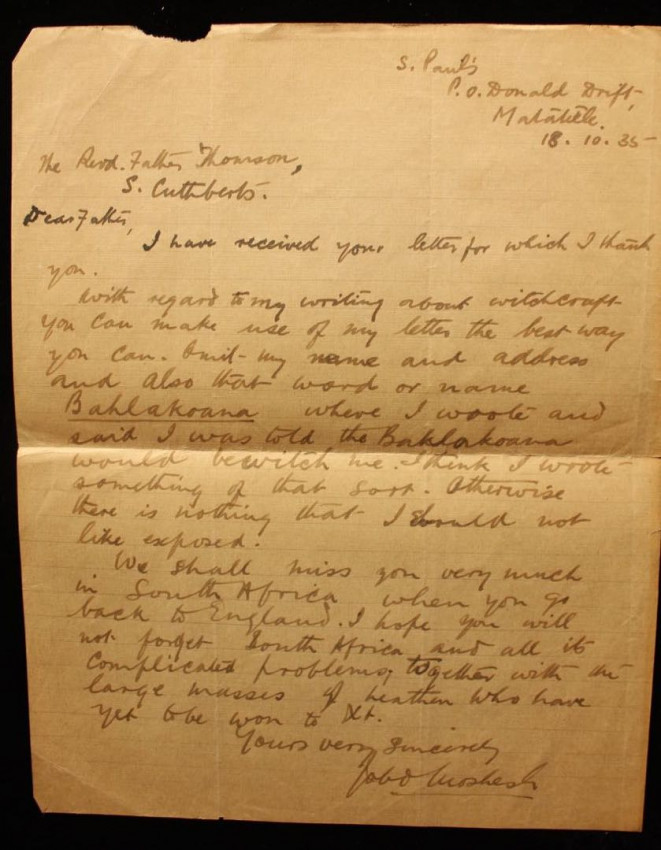 S. Paul's
P.O. Donald Drift,
Matatiele.
18. 10. 35
The Revd. Father Thomson,
S. Cuthberts.
Dear Father,
I have received your letter for which I thank
you.
With regard to my writing about witchcraft
you can make use of my letter the best way
you can. Omit my name and address
and also that word or name
Bahlakoana where I wrote and
said I was told the Bahlakoana
would bewitch me. I think I wrote
something of that sort. Otherwise
there is nothing that I should not
like exposed.
We shall miss you very much
in South Africa when you go
back to England. I hope you will
not forget South Africa and all its
complicated problems, together with the
large masses of heathen who have
yet to be won to Xt.
Yours very sincerely
Moshesh